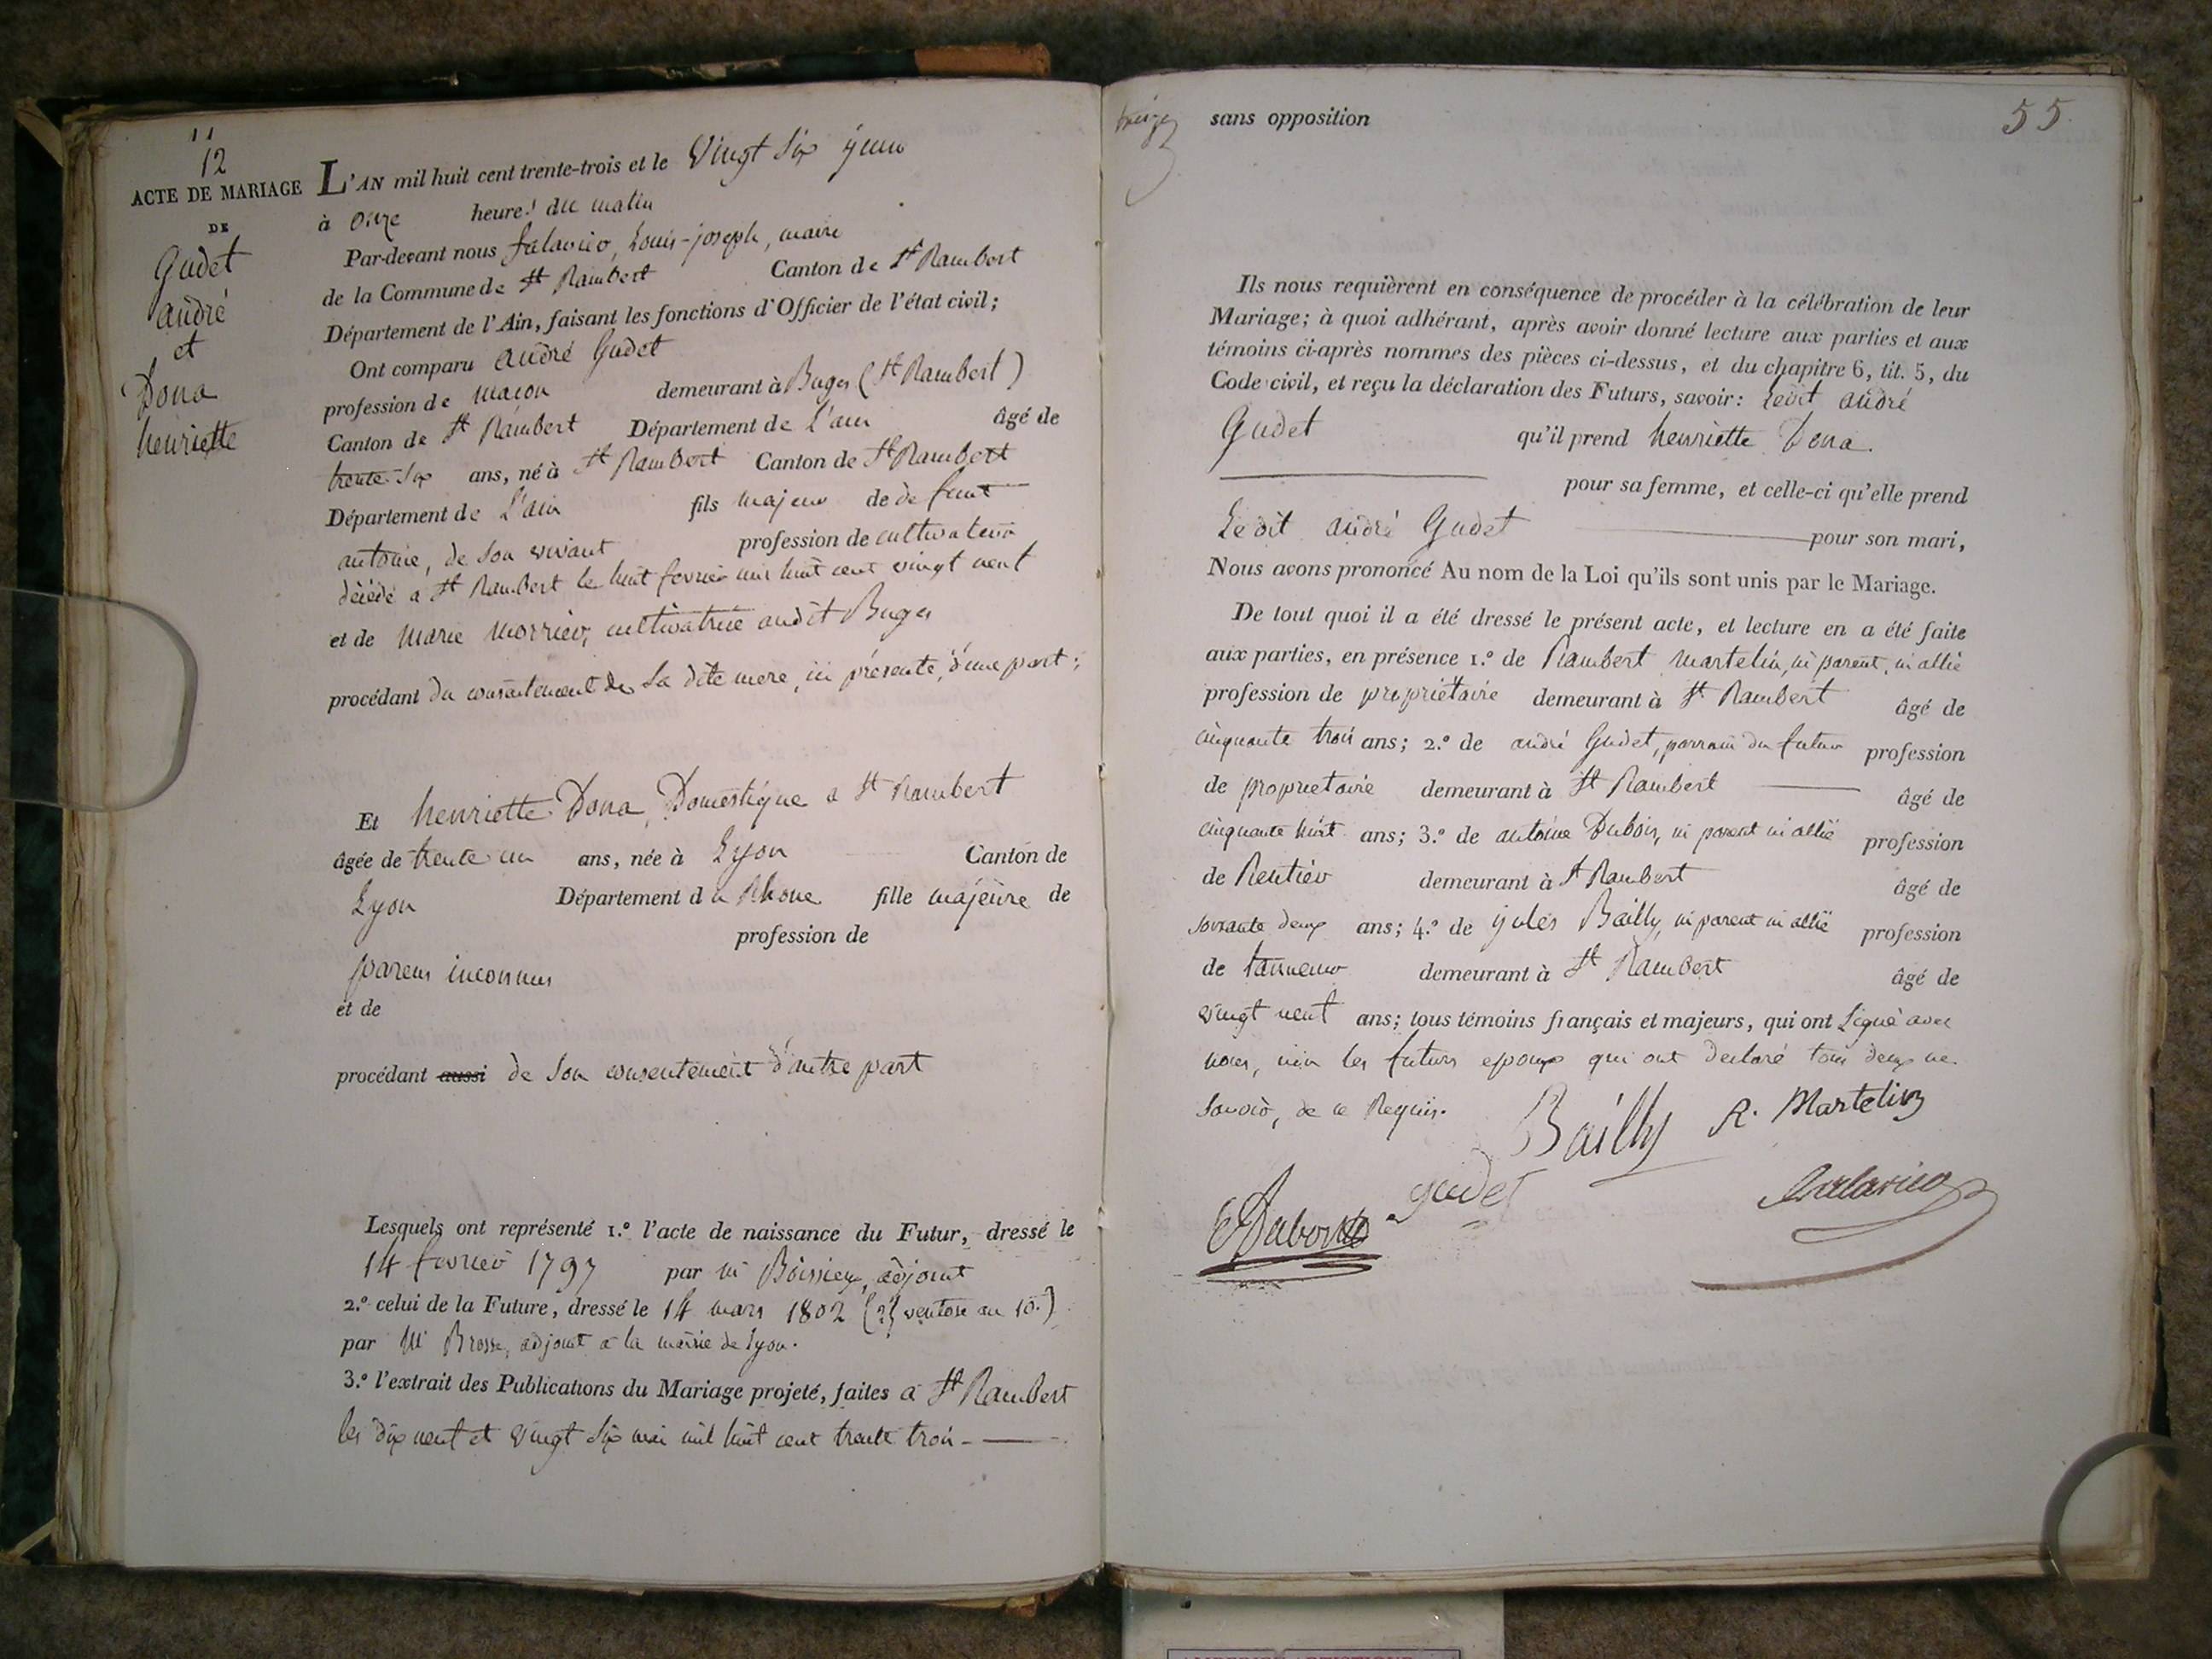 11
12
ACTE DE MARIAGE
DE
Gudet
andré
et
Dona
henriette
L'AN mil huit cent trente-trois et le Vingt Six juin
à onze heures du matin
Par-devant nous falavier, Louis-joseph, maire
de la Commune de St Rambert Canton de St Rambert
Département de l'Ain, faisant les fonctions d'Officier de l'état civil;
Ont comparu andré Gudet
profession de maçon demeurant à Buges (St Rambert)
Canton de St Rambert Département de L'ain âgé de
trente Six ans, né à St Rambert Canton de St Rambert
Département de L'ain fils majeur de defunt
antoine, de Son vivant profession de cultivateur
décédé a St Rambert le huit fevrier mil huit cent vingt neuf
et de Marie Morrier, cultivatrice audit Buges
procédant du consentement de Sa dite mere, ici présente, d'une part;
Et henriette Dona, Domestique a St Rambert
âgée de trente un ans, née à Lyon Canton de
Lyon Département du Rhone fille majeure de
profession de
parens inconnus
et de
procédant aussi de Son consentement d'autre part
Lesquels ont représenté 1.º l'acte de naissance du Futur, dressé le
14 fevrier 1797 par m Boissieux, adjoint
2.º celui de la Future, dressé le 14 mars 1802 (23 ventose an 10.)
par M Brosse, adjoint a la mairie de Lyon.
3.º l'extrait des Publications du Mariage projeté, faites a St Rambert
les dix neuf et vingt Six mai mil huit cent trente trois
55
sans opposition
Ils nous requièrent en conséquence de procéder à la célébration de leur
Mariage; à quoi adhérant, après avoir donné lecture aux parties et aux
témoins ci-après nommés des pièces ci-dessus, et du chapitre 6, tit. 5, du
Code civil, et reçu la déclaration des Futurs, savoir: Ledit andré
Gudet qu'il prend henriette Dona
pour sa femme, et celle-ci qu'elle prend
Ledit andré Gudet pour son mari,
Nous avons prononcé Au nom de la Loi qu'ils sont unis par le Mariage.
De tout quoi il a été dressé le présent acte, et lecture en a été faite
aux parties, en présence 1.º de Rambert Martelin, ni parent, ni allié
profession de propriétaire demeurant à St Rambert âgé de
cinquante trois ans; 2.º de andré Gudet, parrain du futur profession
de proprietaire demeurant à St Rambert âgé de
cinquante huit ans; 3.º de antoine Dubois, ni parent ni allié profession
de Rentier demeurant à St Rambert âgé de
soixante deux ans; 4.º de jules Bailly, ni parent ni allié profession
de tanneur demeurant à St Rambert âgé de
vingt neuf ans; tous témoins français et majeurs, qui ont Signé avec
nous, non les futurs epoux qui ont declaré tous deux ne
Savoir, de ce Requis.
Bailly R. Martelin
gudet